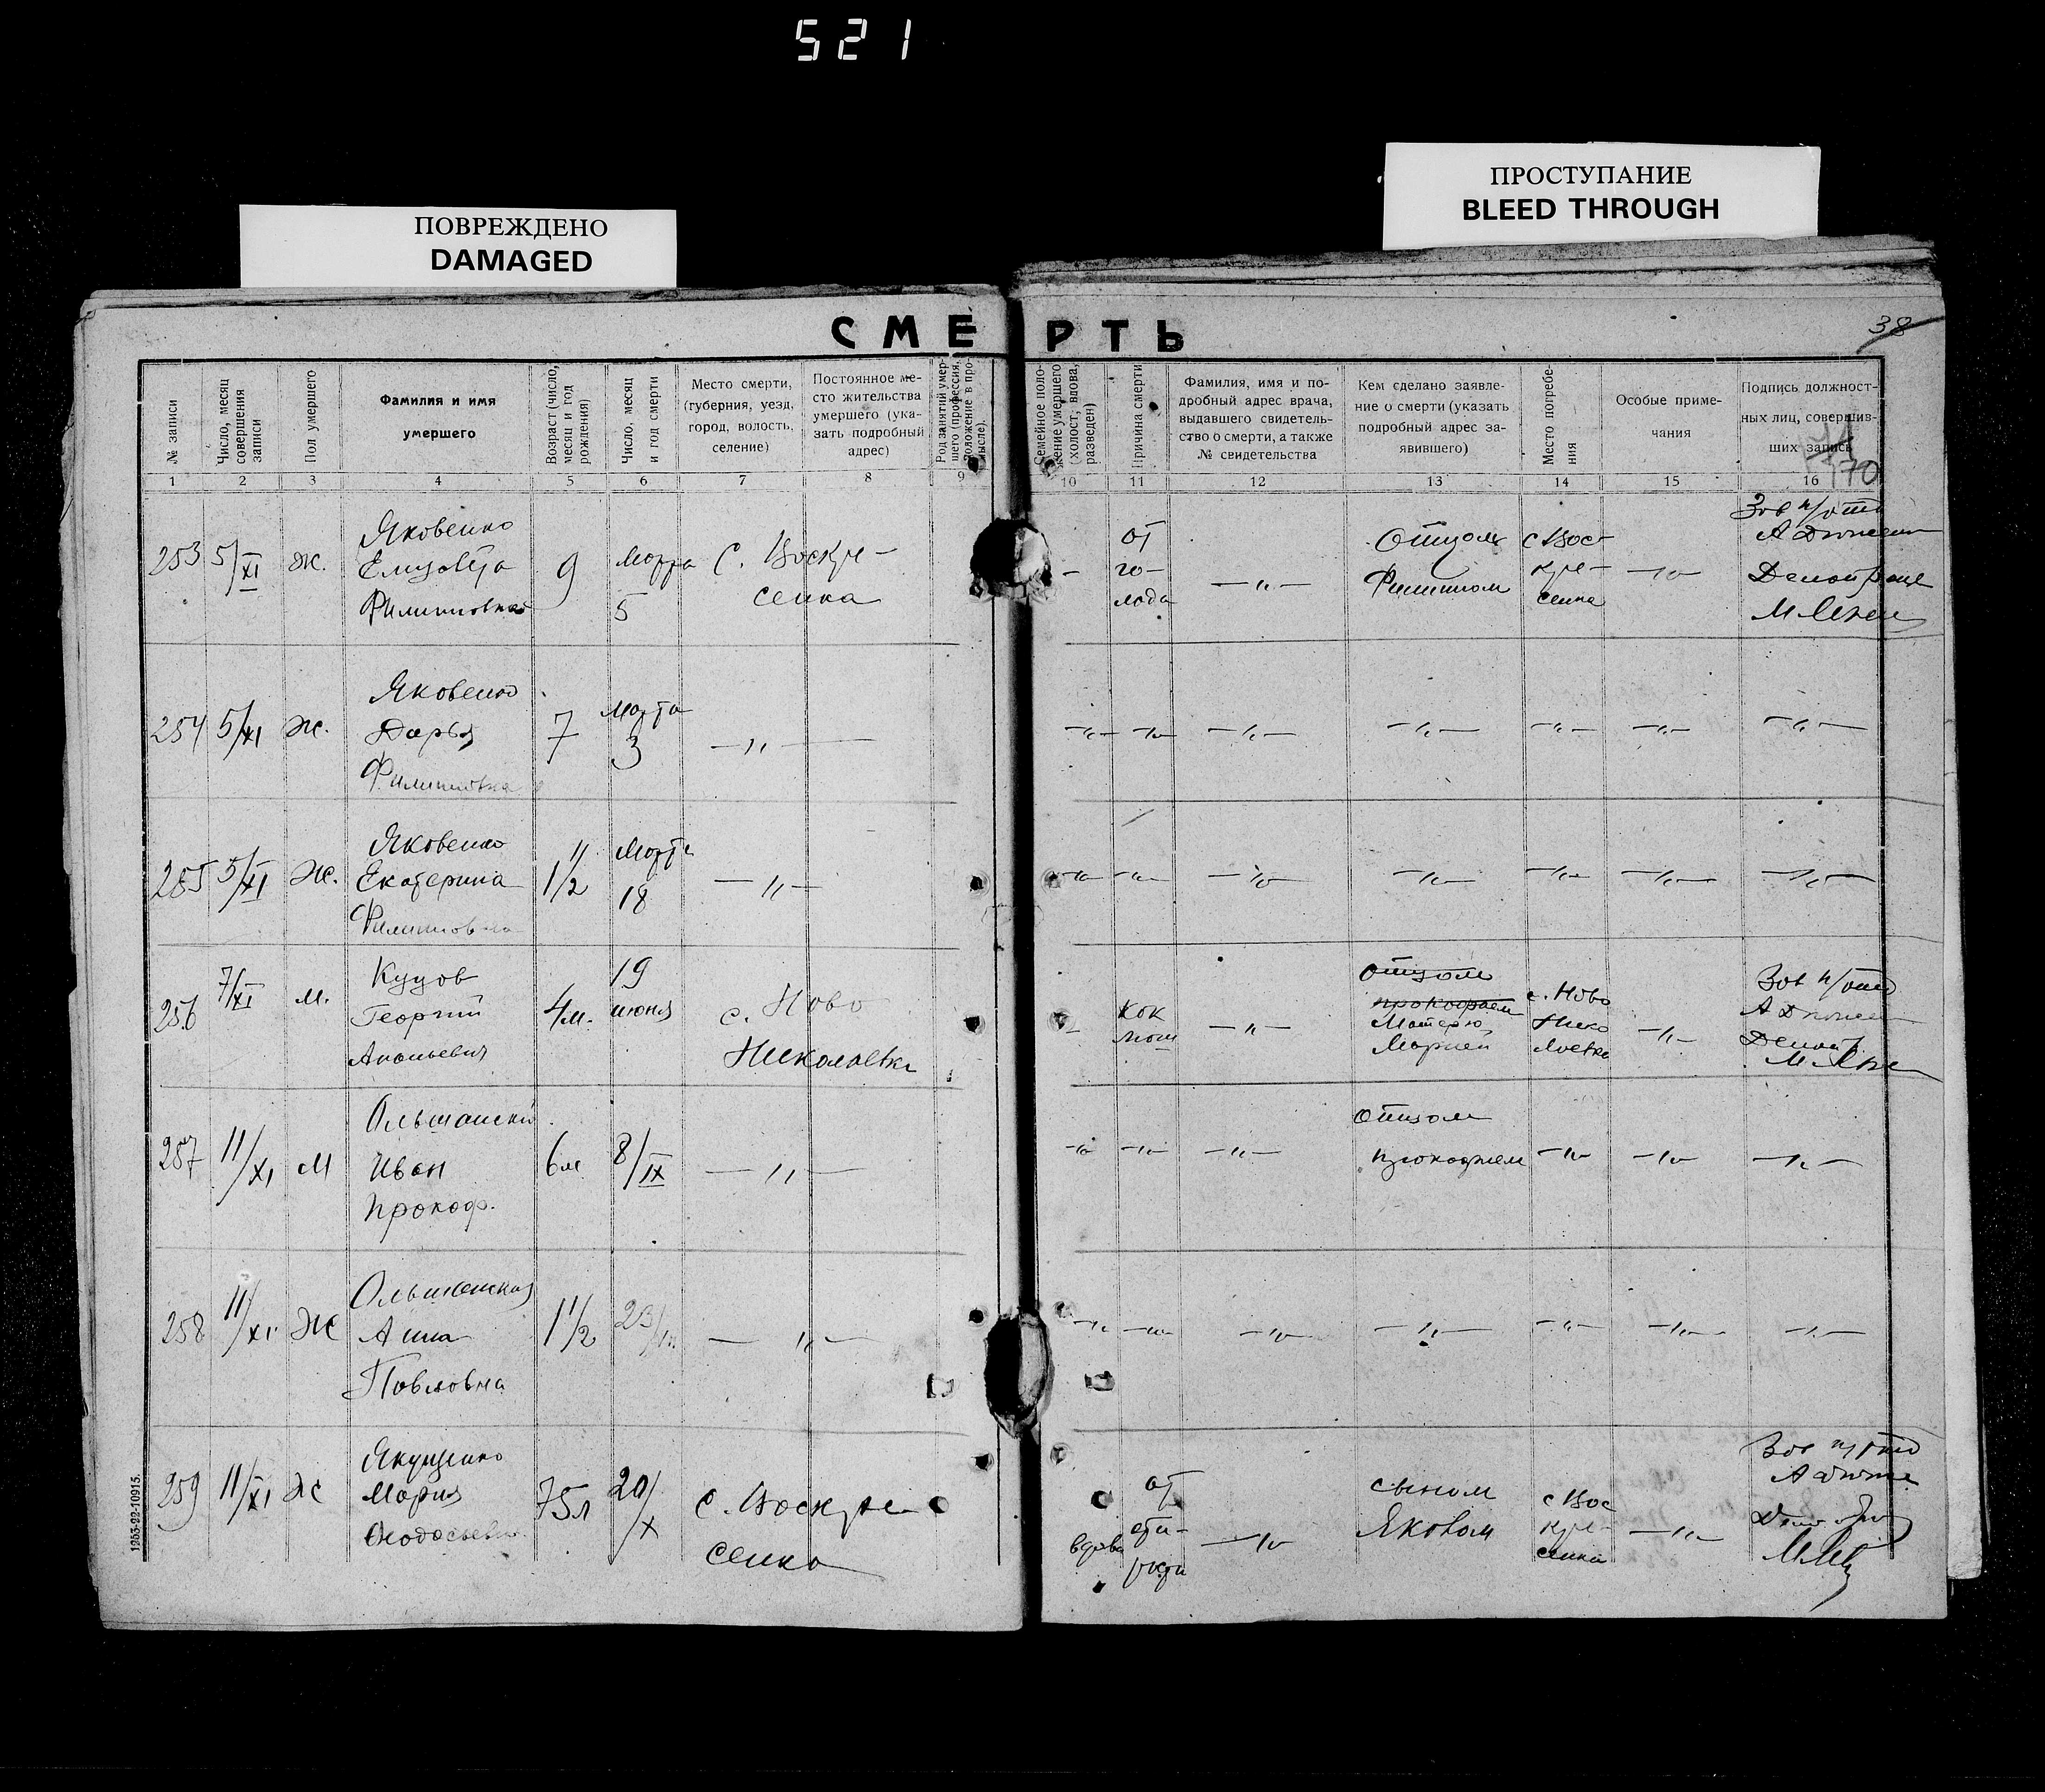 521
ПОВРЕЖДЕНО
DAMAGED
ПРОСТУПАНИЕ
BLEED THROUGH
СМЕРТЬ
38
№ записи
Число, месяц совершения записи
Пол умершего
Фамилия и имя
умершего
Возраст (число, месяц и год рождения)
Число, месяц и год смерти
Место смерти,
(губерния, уезд,
город, волость,
селение)
Постоянное ме-
сто жительства
умершего (ука-
зать подробный
адрес)
Род занятий умер-
шего (профессия,
положение в про-
мысле).
Семейное поло-
жение умершего
(холост, вдова,
разведен)
Причина смерти
Фамилия, имя и по-
дробный адрес врача,
выдавшего свидетель-
ство о смерти, а также
№ свидетельства
Кем сделано заявле-
ние о смерти (указать
подробный адрес за-
явившего)
Место погребе-
ния
Особые приме-
чания
Подпись должност-
ных лиц, совершив-
ших запись
70
1 2 3 4 5 6 7 8 9 10 11 12 13 14 15 16
253 5/XI ж.
Яковенко
Елизовета
Филипповна
9
Марта
5
С. Воскре-
сенка
-
от
го-
лода
-"-
Отцом
Филиппом
с Вос-
кре-
сенка
-"-
Зав п/отд
254 5/XI Ж.
Яковенко
Дарья
Филипповна
7
Марта
3
-"- -"- -"- -"- -"- -"- -"- -"-
255 5/XI Ж.
Яковенко
Екатерина
Филипповна
1 1/2
Марта
18
-"- -"- -"- -"- -"- -"- -"- -"-
256 7/XI м.
Куцов
Георгий
Ананьевич
4м.
19
июня
с. Ново
Николаевка
-
Кок
люш
-"-
Отцом
Прокофием
Матерю
Марией
с. Ново
Нико
лаевка
-"-
Зав п/отд
257 11/XI М
Ольшанский
Иван
Прокоф.
6м
8/IX
-"- -"- -"- -"-
Отцом
Прокофием
-"- -"- -"-
258 11/XI Ж
Ольшанская
Анна
Повловна
1 1/2
-"- -"- -"- -"- -"- -"- -"- -"-
259 11/XI Ж
Якущенко
Мария
75л
20/X
с. Воскре
сенка
вдова
от
-"-
сыном
Яковом
с Вос
кре-
сенка
-"-
Зав п/отд
1253-22-10915.